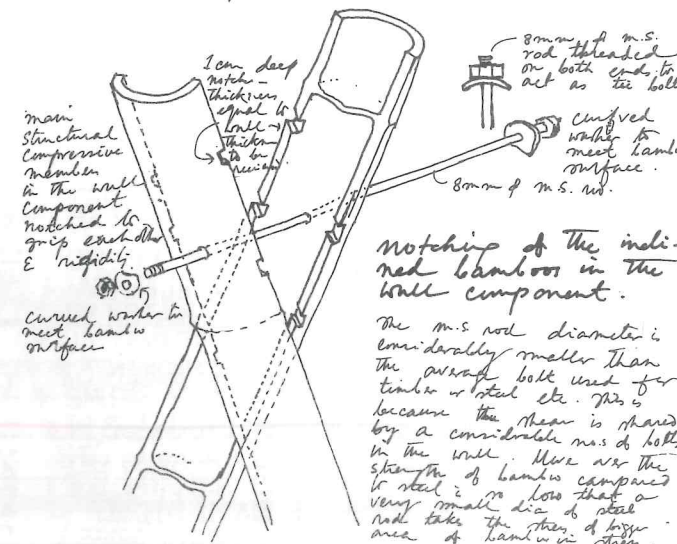 1 cm deep
notch -
thickness
equal to
wall
thickn
to be
receiv
main
structural
compressive
members
in the wall
component
notched to
grip each other
& rigidity
curved washer to
meet bamboo
surface
8mm φ m.s.
rod threaded
on both ends to
act as tie bolt
curved
washer to
meet bamb
surface.
8mm φ m.s. rod.
notching of the incli-
ned bamboos in the
wall component.
The m.s rod diameter is
considerably smaller than
the average bolt used for
timber or steel etc. This is
because the shear is shared
by a considerable no.s of bolts
in the wall. More over the
strength of bamboo campared
to steel is so low that a
very small dia of steel
rod takes the stress of bigger
area of bamboo in stress